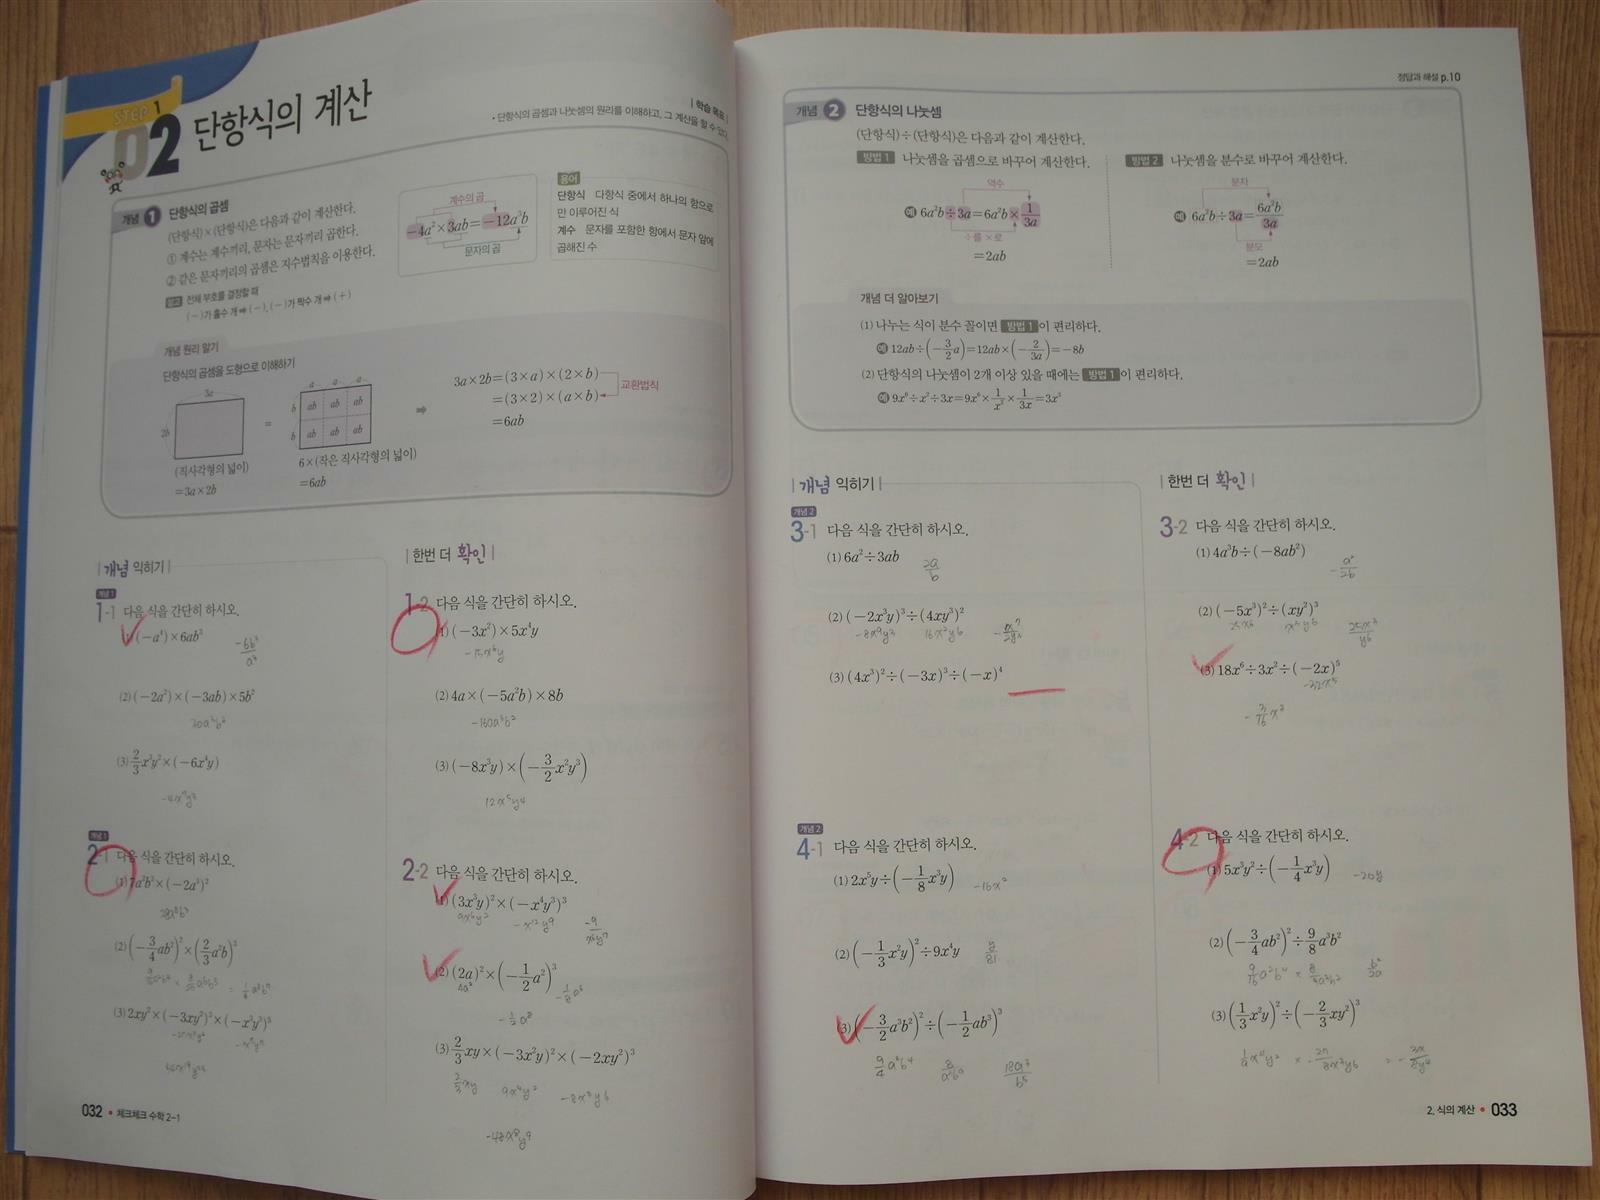 STEP 1
02 단항식의 계산
| 학습 목표 |
• 단항식의 곱셈과 나눗셈의 원리를 이해하고, 그 계산을 할 수 있다.
개념 1 단항식의 곱셈
(단항식)×(단항식)은 다음과 같이 계산한다.
① 계수는 계수끼리, 문자는 문자끼리 곱한다.
② 같은 문자끼리의 곱셈은 지수법칙을 이용한다.
참고 전체 부호를 결정할 때
(−)가 홀수 개 ➡ (−), (−)가 짝수 개 ➡ (+)
계수의 곱
−4a²×3ab=−12a³b
문자의 곱
용어
단항식 다항식 중에서 하나의 항으로
만 이루어진 식
계수 문자를 포함한 항에서 문자 앞에
곱해진 수
개념 원리 알기
단항식의 곱셈을 도형으로 이해하기
3a
2b
=
a a a
b ab ab ab
b ab ab ab
(직사각형의 넓이)
=3a×2b
6×(작은 직사각형의 넓이)
=6ab
➡
3a×2b=(3×a)×(2×b)
=(3×2)×(a×b)
=6ab
교환법칙
| 개념 익히기 |
개념 1
1-1 다음 식을 간단히 하시오.
(−a⁴)×6ab³
(2) (−2a²)×(−3ab)×5b²
30a³b³
(3) 2/3x³y²×(−6x⁴y)
−4x⁷y³
개념 1
2-1 다음 식을 간단히 하시오.
(1) 7a²b³×(−2a³)²
28a⁸b³
(2) (−3/4ab²)²×(2/3a²b)³
(3) 2xy²×(−3xy²)³×(−x³y³)³
| 한번 더 확인 |
1-2 다음 식을 간단히 하시오.
(1) (−3x²)×5x⁴y
−15x⁶y
(2) 4a×(−5a²b)×8b
−160a³b²
(3) (−8x³y)×(−3/2x²y³)
12x⁵y⁴
2-2 다음 식을 간단히 하시오.
(1) (3x³y)²×(−x⁴y³)³
9x⁶y² −x¹²y⁹
(2) (2a)²×(−1/2a²)³
4a² −1/8a⁶
−1/2a⁸
(3) 2/3xy×(−3x²y)²×(−2xy²)³
2/3xy 9x⁴y² −8x³y⁶
−48x⁸y⁹
032 • 체크체크 수학 2-1
정답과 해설 p.10
개념 2 단항식의 나눗셈
(단항식)÷(단항식)은 다음과 같이 계산한다.
방법 1 나눗셈을 곱셈으로 바꾸어 계산한다.
역수
예 6a²b÷3a=6a²b×1/3a
÷를 ×로
=2ab
방법 2 나눗셈을 분수로 바꾸어 계산한다.
분자
예 6a²b÷3a=6a²b/3a
분모
=2ab
개념 더 알아보기
(1) 나누는 식이 분수 꼴이면 방법 1 이 편리하다.
예 12ab÷(−3/2a)=12ab×(−2/3a)=−8b
(2) 단항식의 나눗셈이 2개 이상 있을 때에는 방법 1 이 편리하다.
예 9x⁶÷x²÷3x=9x⁶×1/x²×1/3x=3x³
| 개념 익히기 |
개념 2
3-1 다음 식을 간단히 하시오.
(1) 6a²÷3ab
2a/b
(2) (−2x³y)³÷(4xy³)²
−8x⁹y³ 16x²y⁶
(3) (4x³)²÷(−3x)³÷(−x)⁴
개념 2
4-1 다음 식을 간단히 하시오.
(1) 2x⁵y÷(−1/8x³y)
−16x²
(2) (−1/3x²y)²÷9x⁴y
y/81
(3) (−3/2a³b²)²÷(−1/2ab³)³
| 한번 더 확인 |
3-2 다음 식을 간단히 하시오.
(1) 4a³b÷(−8ab²)
−a²/2b
(2) (−5x³)²÷(xy²)³
25x⁶ x³y⁶
25x³/y⁶
(3) 18x⁶÷3x²÷(−2x)⁵
−32x⁵
−3/16x²
4-2 다음 식을 간단히 하시오.
(1) 5x³y²÷(−1/4x³y)
−20y
(2) (−3/4ab²)²÷9/8a³b²
9/16a²b⁴×8/9a³b²
b²/2a
(3) (1/3x²y)²÷(−2/3xy²)³
2. 식의 계산 • 033